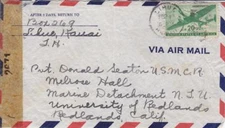 AFTER 5 DAYS, RETURN TO
Box 269
Lihue, Kauai
T.H.
VIA AIR MAIL
Pvt. Donald Seaton U.S.M.C.R
Melrose Hall
Marine Detachment N.T.U
University of Redlands
Redlands, Calif.